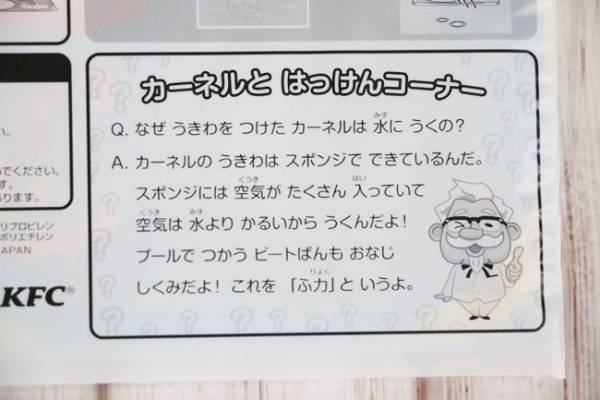 カーネルと はっけんコーナー
Q. なぜ うきわを つけた カーネルは 水に うくの?
A. カーネルの うきわは スポンジで できているんだ。
スポンジには 空気が たくさん 入っていて
空気は 水より かるいから うくんだよ!
プールで つかう ビートばんも おなじ
しくみだよ! これを 「ふ力」と いうよ。
い。
でください。
す。
あります。
リプロピレン
ポリエチレン
APAN
KFC®